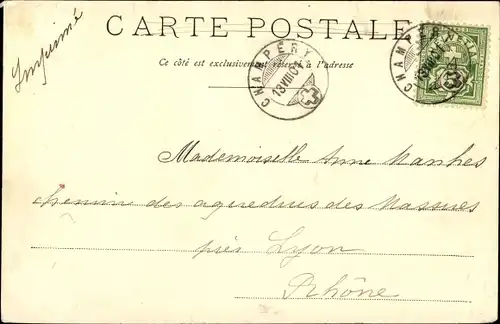 Imprimé
CARTE POSTALE
Ce côté est exclusivement réservé à l'adresse
CHAMPÉRY
13 VIII 04
CHAMPÉRY
Mademoiselle Anne Manhes
chemin des aqueducs des Massues
près Lyon
Rhône